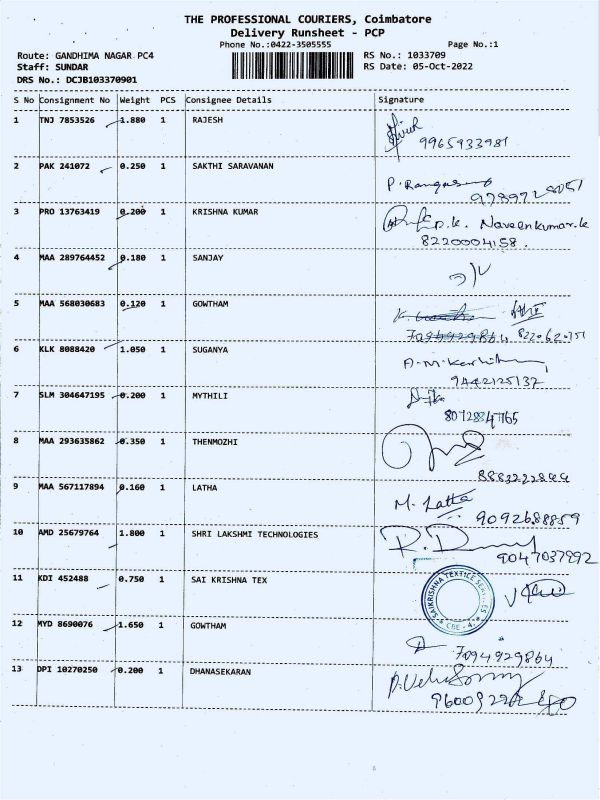 THE PROFESSIONAL COURIERS, Coimbatore
Delivery Runsheet - PCP
Phone No.:0422-3505555
Page No.:1
Route: GANDHIMA NAGAR PC4
RS No.: 1033709
Staff: SUNDAR
RS Date: 05-Oct-2022
DRS No.: DCJB103370901
S No Consignment No Weight PCS Consignee Details Signature
1 TNJ 7853526 1.880 1 RAJESH
9965933981
2 PAK 241072 0.250 1 SAKTHI SARAVANAN
3 PRO 13763419 0.200 1 KRISHNA KUMAR
Naveenkumar.k
8220004158.
4 MAA 289764452 0.180 1 SANJAY
5 MAA 568030683 0.120 1 GOWTHAM
6 KLK 8088420 1.050 1 SUGANYA
9442125137
7 SLM 304647195 0.200 1 MYTHILI
8072884765
8 MAA 293635862 0.350 1 THENMOZHI
9 MAA 567117894 0.160 1 LATHA
M. Latha
9092688859
10 AMD 25679764 1.800 1 SHRI LAKSHMI TECHNOLOGIES
9047037992
11 KDI 452488 0.750 1 SAI KRISHNA TEX
12 MYD 8690076 1.650 1 GOWTHAM
7094929864
13 DPI 10270250 0.200 1 DHANASEKARAN